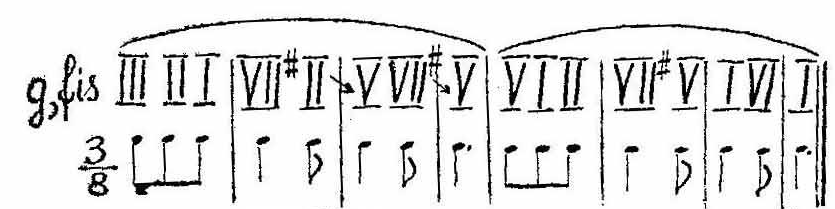 g, fis III II I | VII♯ II | V VII♯ | V | V I II | VII♯ V | I VI | I
3/8